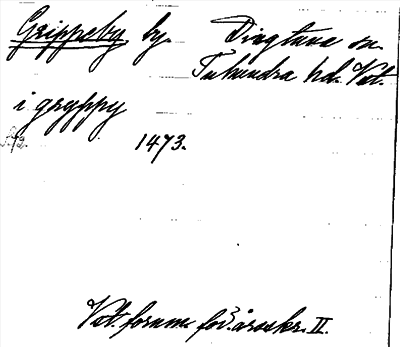 Grippeby by. Dingtuna sn.
Tuhundra hd. Vstm.
i gryppy
1473.
Vstm. fornm. för. årsskr. II.